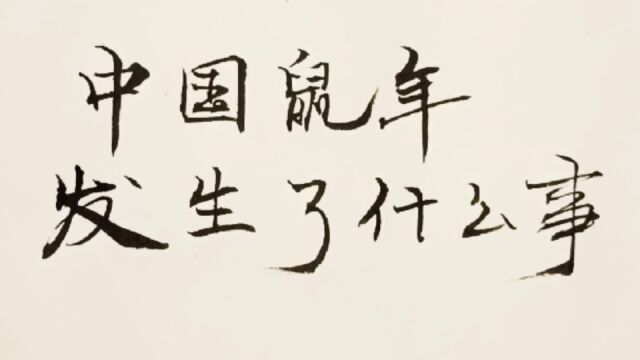 中国鼠年
发生了什么事